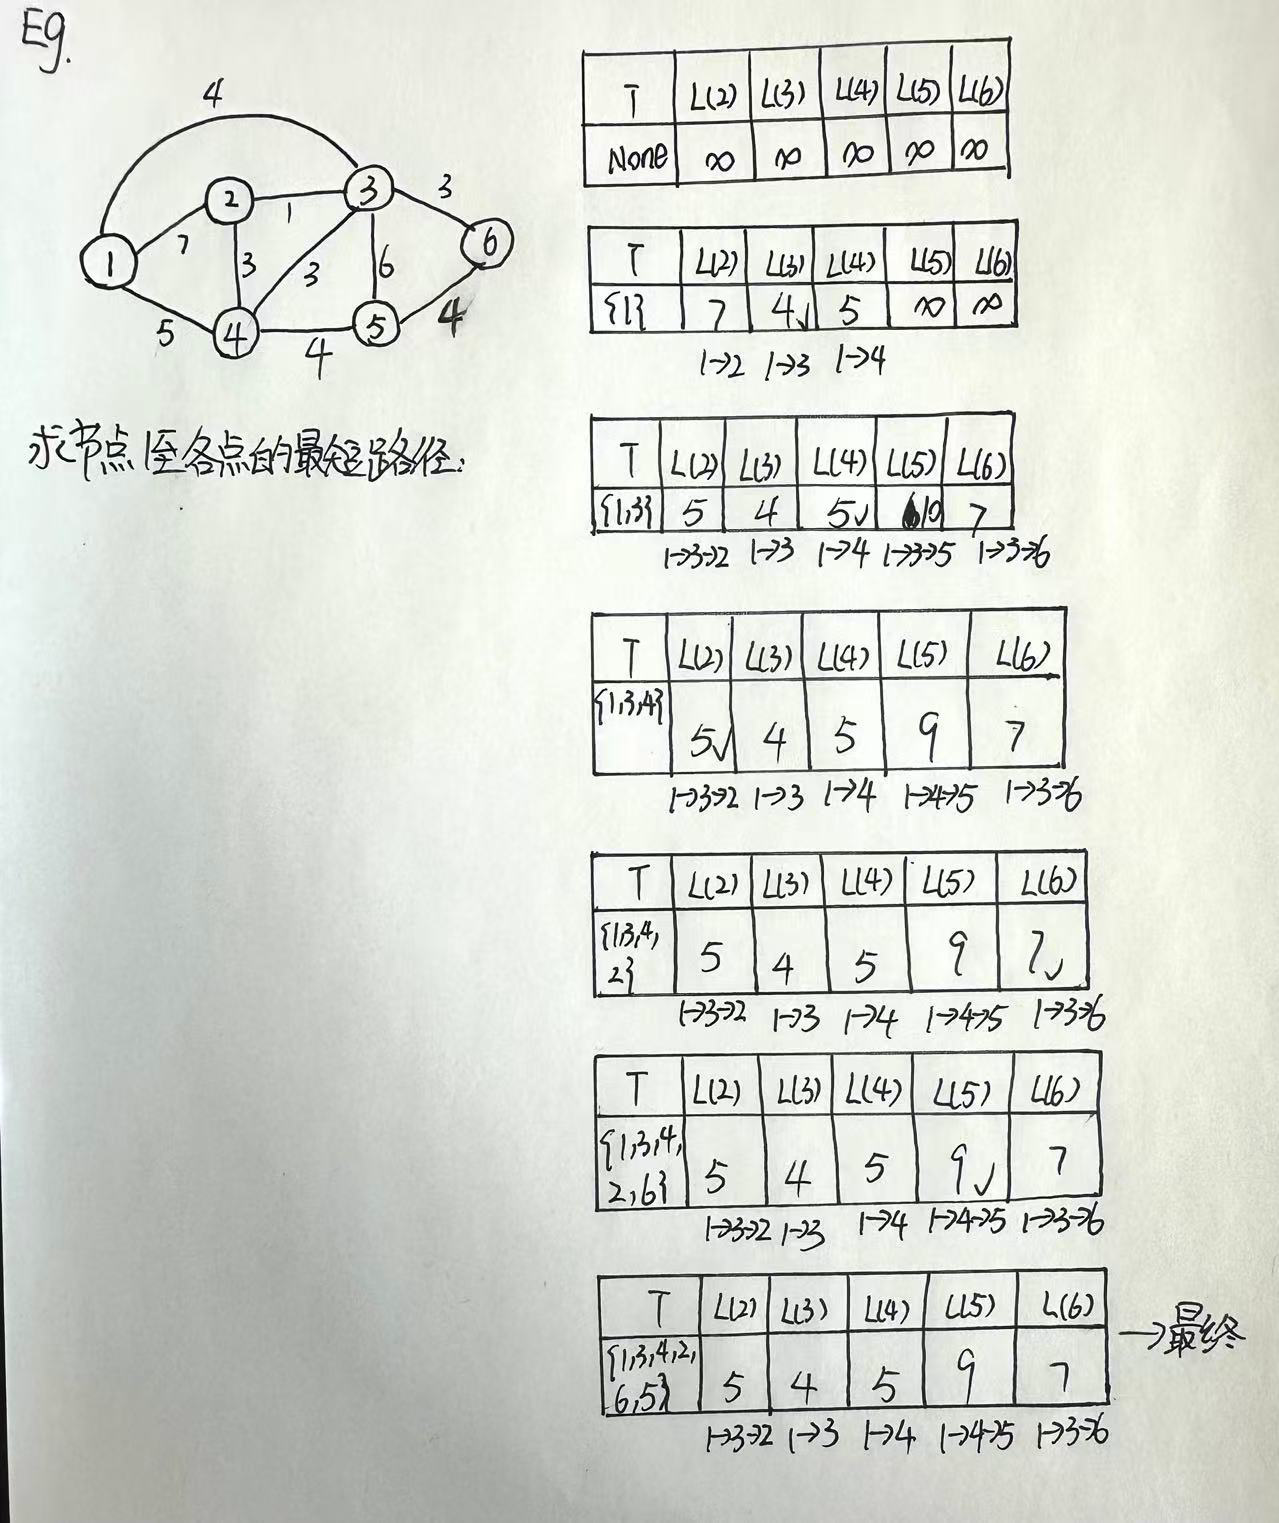 Eg.
4
1 2 3 4 5 6
7 1 3
3 3 6
5 4 4
求节点1至各点的最短路径.
T L(2) L(3) L(4) L(5) L(6)
None ∞ ∞ ∞ ∞ ∞
T L(2) L(3) L(4) L(5) L(6)
{1} 7 4✓ 5 ∞ ∞
1→2 1→3 1→4
T L(2) L(3) L(4) L(5) L(6)
{1,3} 5 4 5✓ 10 7
1→3→2 1→3 1→4 1→3→5 1→3→6
T L(2) L(3) L(4) L(5) L(6)
{1,3,4} 5✓ 4 5 9 7
1→3→2 1→3 1→4 1→4→5 1→3→6
T L(2) L(3) L(4) L(5) L(6)
{1,3,4,
2} 5 4 5 9 7✓
1→3→2 1→3 1→4 1→4→5 1→3→6
T L(2) L(3) L(4) L(5) L(6)
{1,3,4,
2,6} 5 4 5 9✓ 7
1→3→2 1→3 1→4 1→4→5 1→3→6
T L(2) L(3) L(4) L(5) L(6)
→最终
{1,3,4,2,
6,5} 5 4 5 9 7
1→3→2 1→3 1→4 1→4→5 1→3→6